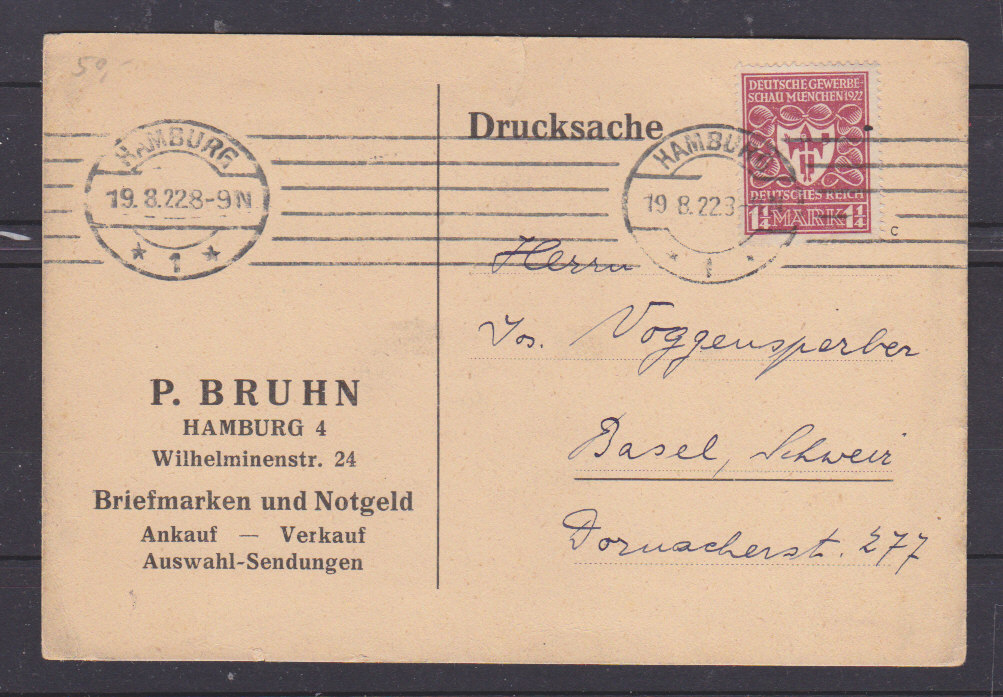 50,-
Drucksache
DEUTSCHE GEWERBE-
SCHAU MUENCHEN 1922
DEUTSCHES REICH
1¼ MARK 1¼
c
HAMBURG
19. 8.22 8-9 N
* 1 *
HAMBURG
19 8.22.8-9 N
* 1 *
Herrn
Jos. Voggensperber
Basel, Schweiz
Dornacherst. 277
P. BRUHN
HAMBURG 4
Wilhelminenstr. 24
Briefmarken und Notgeld
Ankauf — Verkauf
Auswahl-Sendungen